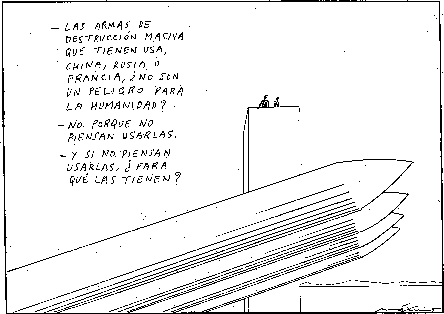 – LAS ARMAS DE
DESTRUCCIÓN MASIVA
QUE TIENEN USA,
CHINA, RUSIA Ó
FRANCIA, ¿NO SON
UN PELIGRO PARA
LA HUMANIDAD?
– NO. PORQUE NO
PIENSAN USARLAS.
– Y SI NO PIENSAN
USARLAS, ¿PARA
QUÉ LAS TIENEN?